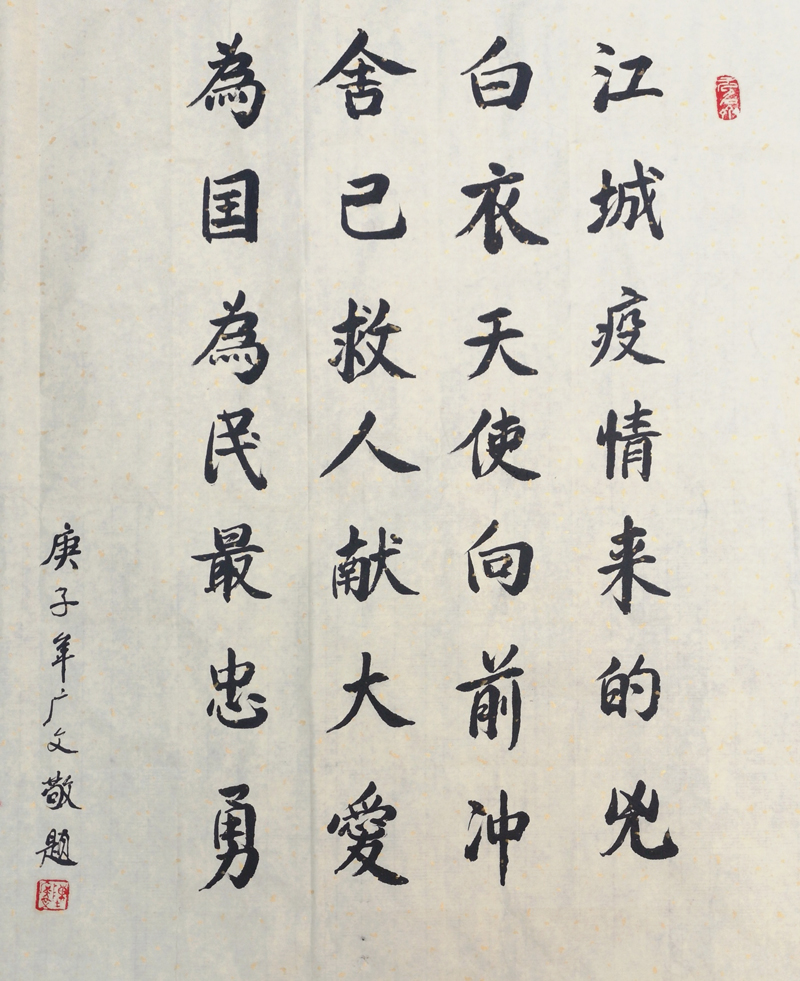 江城疫情来的兇
白衣天使向前冲
舍己救人献大愛
為国為民最忠勇
庚子年广文敬题